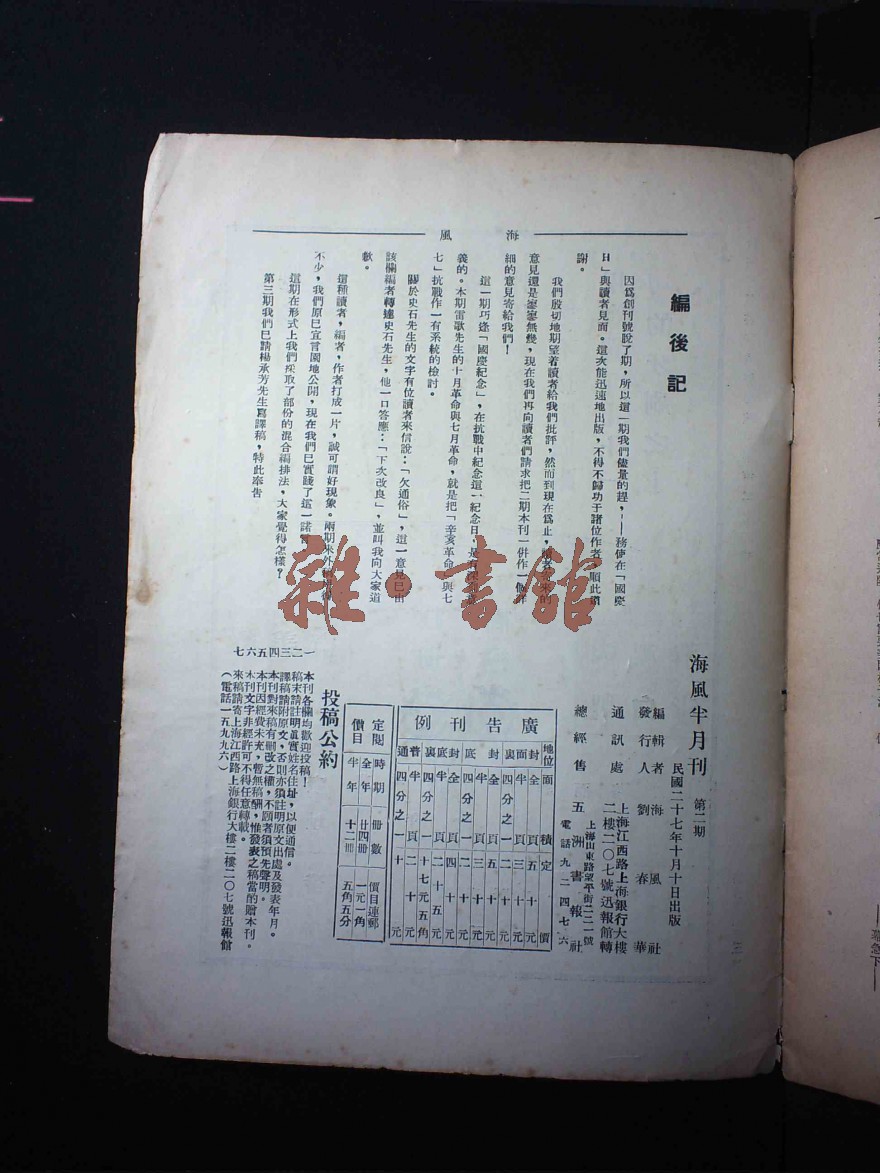 海風
編後記
因爲創刊號脫了期，所以這一期我們儘量的趕，——務使在「國慶
日」與讀者見面。這次能迅速地出版，不得不歸功于諸位作者，順此謝
謝。
我們殷切地期望着讀者給我們批評，然而到現在爲止，讀者寄來的
意見還是寥寥無幾，現在我們再向讀者們請求把二期本刊一併作一個詳
細的意見寄給我們！
這一期巧逢「國慶紀念」，在抗戰中紀念這一紀念日，是有
義的。本期雷歌先生的十月革命與七月革命，就是把「辛亥革命」與七
七」抗戰作一有系統的檢討。
關於史石先生的文字有位讀者來信說：「欠通俗」，這一意見已由
該欄編者轉達史石先生，他一口答應：「下次改良」，並叫我向大家道
歉。
這種讀者，編者，作者打成一片，誠可謂好現象。兩期來外
不少，我們原已宣言園地公開，現在我們已實踐了這一諾言
這期在形式上我們採取了部份的混合編排法，大家覺得怎樣？
第三期我們已請楊承芳先生寫譯稿，特此奉告
雜·書館
海風半月刊 第二期
民國二十七年十月十日出版
編輯者 海風社
發行人 劉春華
通訊處 上海江西路上海銀行大樓
二樓二〇七號迅報館轉
總經售 五洲書報社
上海山東路望平街二二一號
電話九二四七六
廣告刊例
地位 面積 定價
封面 全頁 五十元
半頁 三十元
封裏 四分之一 二十元
全頁 五十元
封底 半頁 三十元
四分之一 二十元
底裏 全頁 四十元
半頁 二十五元
四分之一 十七元五角
普通 半頁 二十元
四分之一 十元
定閱價目
時期 冊數 價目連郵
全年 廿四冊 一元一角
半年 十二冊 五角五分
投稿公約
一 本刊各欄均歡迎投稿！
二 稿末請註明眞實姓名住址，以便通信。
三 譯稿請附原文，否則亦須註明原文出處及發表年月。
四 本刊對來稿有刪改之權，不願者須預先聲明。
五 本刊因經費未充，暫無稿酬，惟發表之稿當酌贈本刊。
六 本刊文字非經許可不得任意轉載。
七 來稿請寄上海江西路上海銀行大樓二樓二〇七號迅報館
（電話一五九九六）